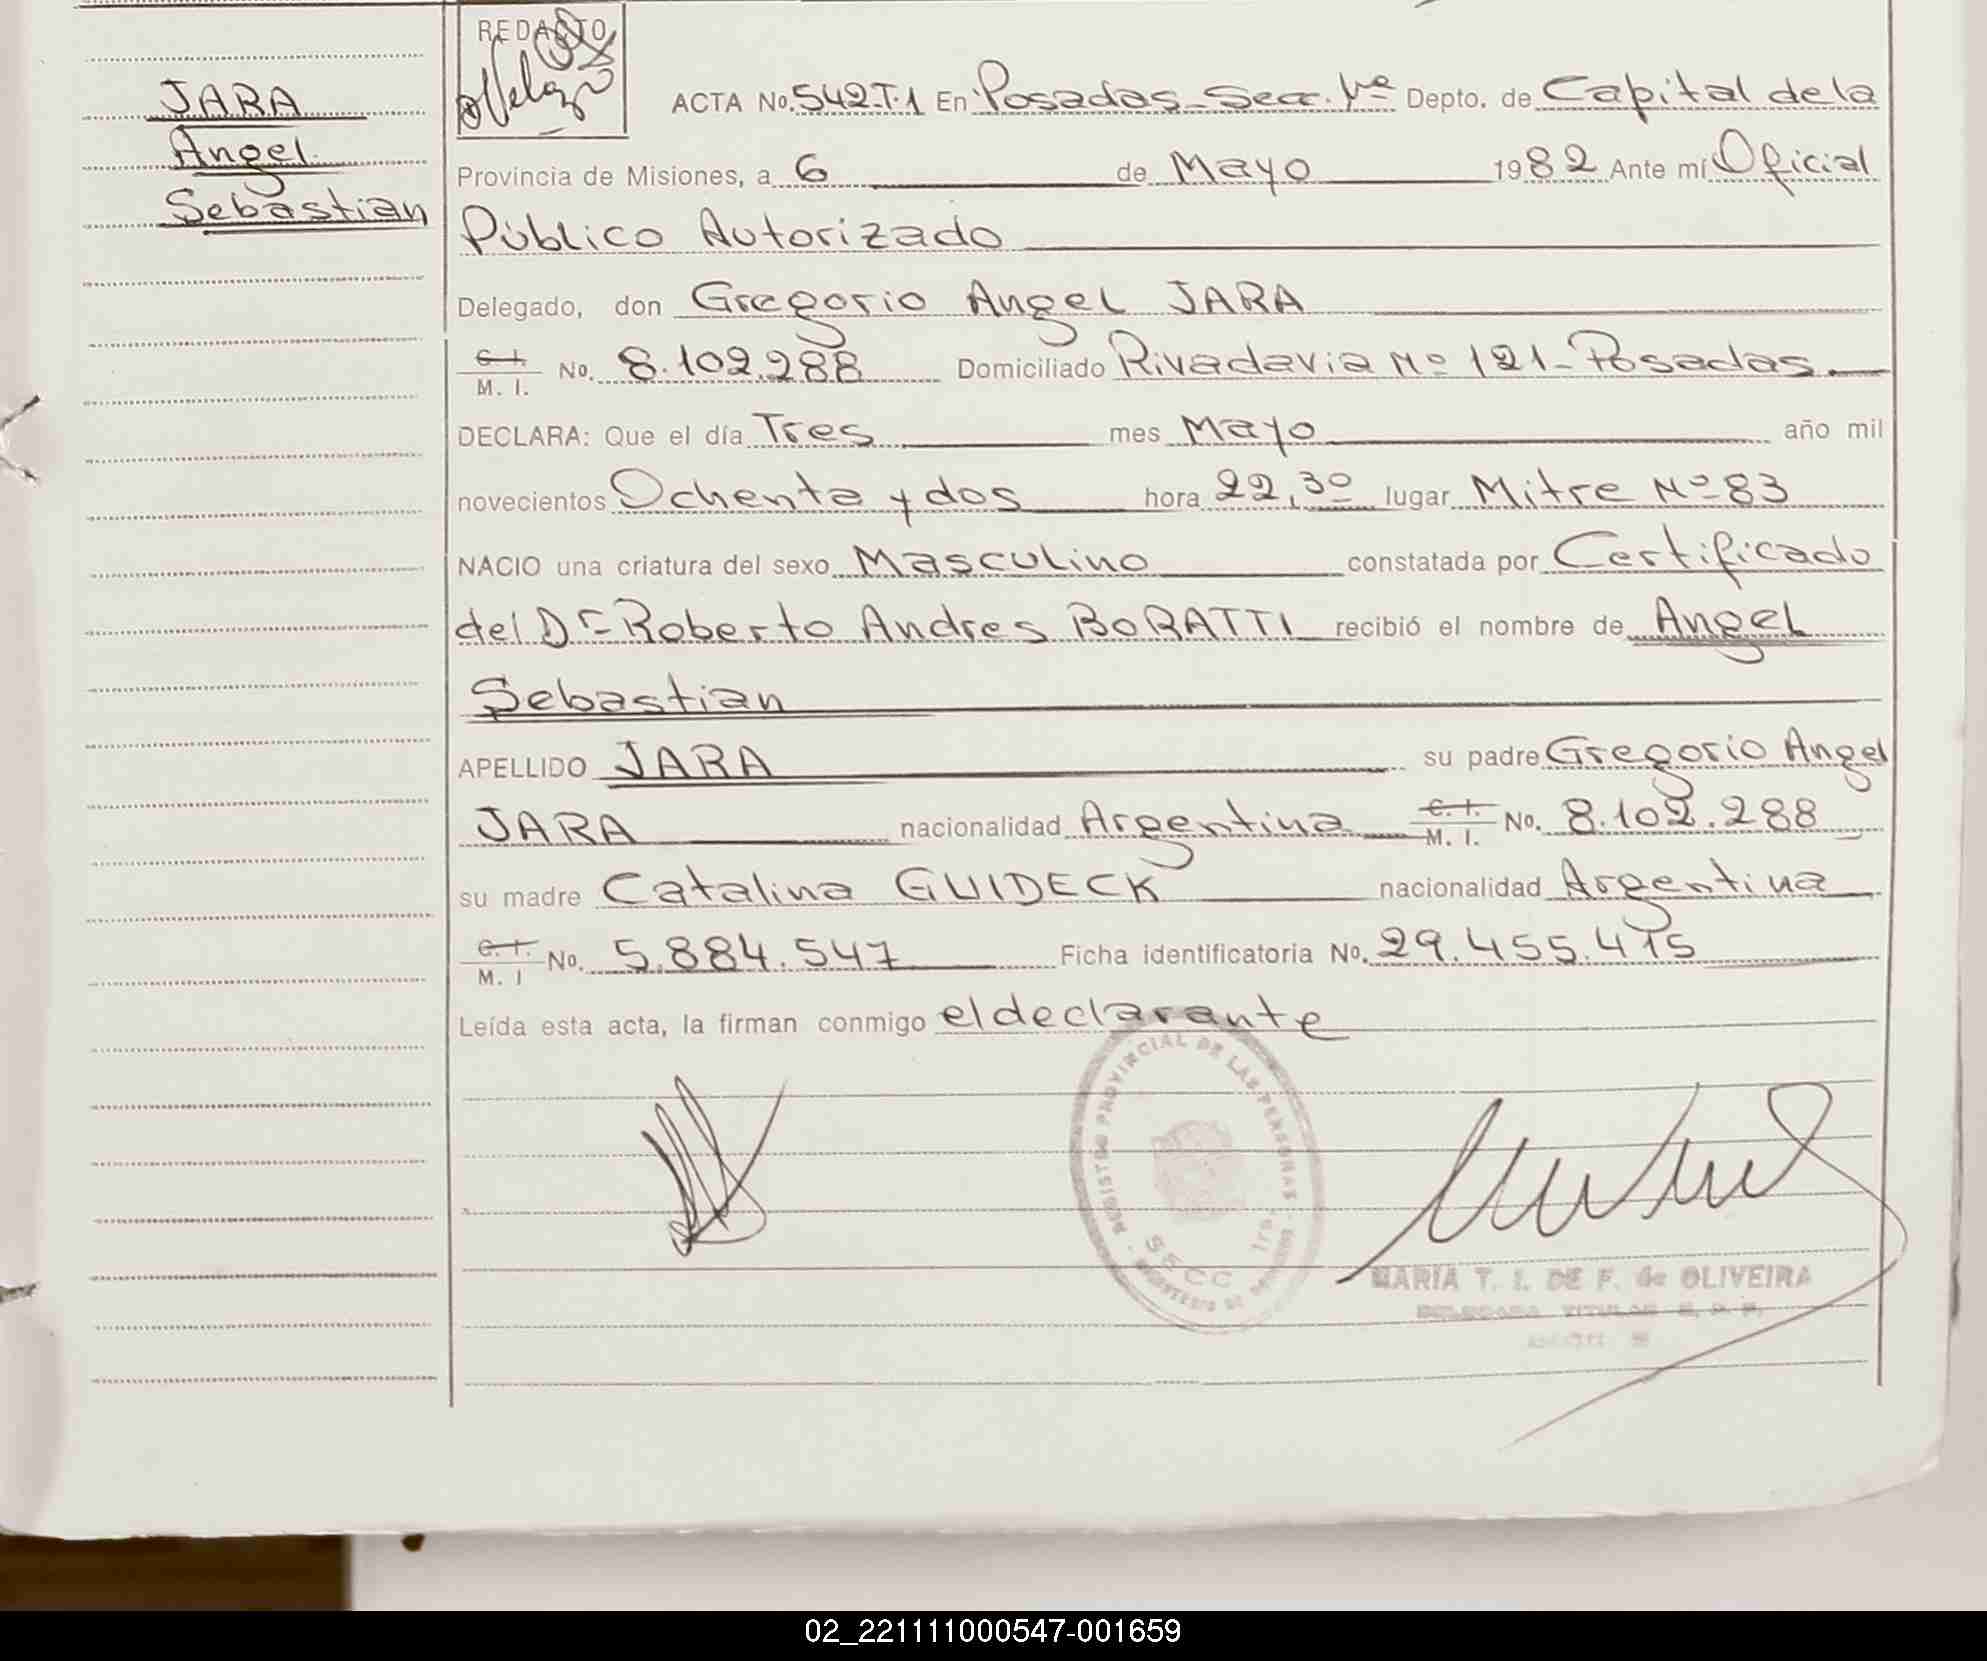 JARA
Angel
Sebastian
REDACTO
ACTA No. 542-T.1 En Posadas-Secc. 1ª Depto. de Capital de la
Provincia de Misiones, a 6 de Mayo 1982 Ante mí Oficial
Público Autorizado
Delegado, don Gregorio Angel JARA
C. I.
M. I. No. 8.102.288 Domiciliado Rivadavia Nº 121-Posadas.
DECLARA: Que el día Tres mes Mayo año mil
novecientos Ochenta y dos hora 22,30 lugar Mitre Nº 83
NACIO una criatura del sexo Masculino constatada por Certificado
del Dr Roberto Andres BORATTI recibió el nombre de Angel
Sebastian
APELLIDO JARA su padre Gregorio Angel
JARA nacionalidad Argentina C. I. M. I. No. 8.102.288
su madre Catalina GUIDECK nacionalidad Argentina
C. I. M. I No. 5.884.547 Ficha identificatoria No. 29.455.415
Leída esta acta, la firman conmigo el declarante
REGISTRO PROVINCIAL DE LAS PERSONAS
SECC 1ra.
MARIA T. I. DE F. de OLIVEIRA
DELEGADA TITULAR
02_221111000547-001659